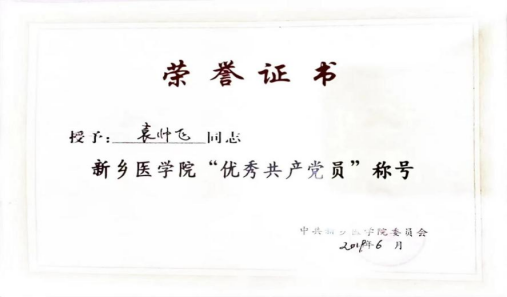 荣誉证书
授予：袁帅飞 同志
新乡医学院“优秀共产党员”称号
中共新乡医学院委员会
2019年6月